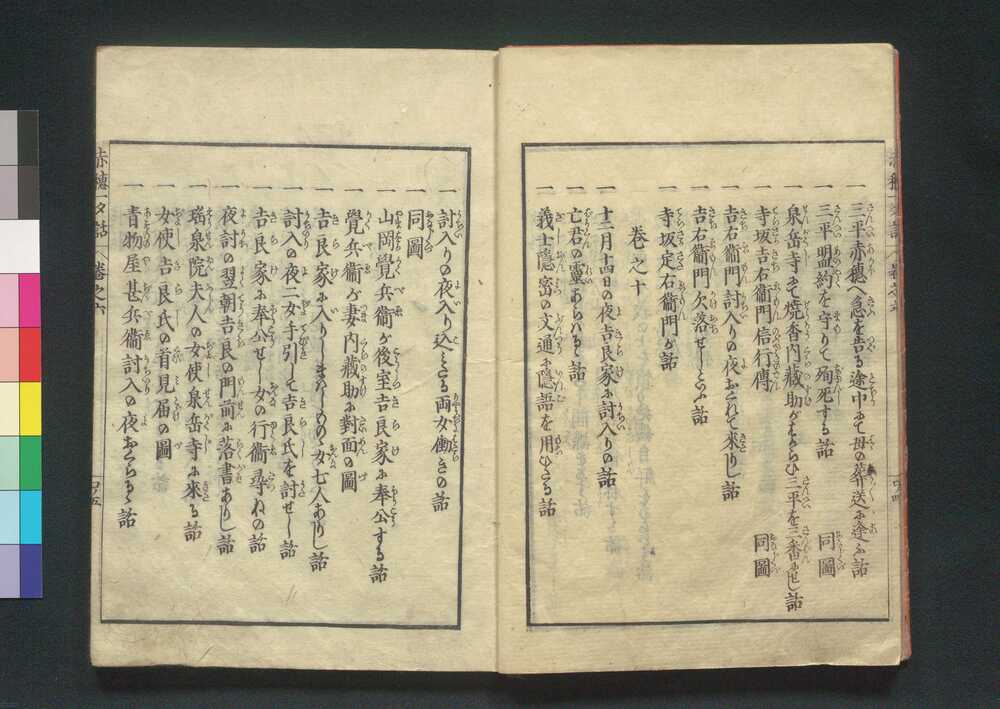 一 三平赤穂へ急を告る途中にて母の葬送に逢ふ話
一 三平盟約を守りて殉死する話 同圖
一 泉岳寺にて焼香内蔵助がはからひ三平を三番にせし話
一 寺坂吉右衛門信行傳 同圖
一 吉右衛門討入りの夜おくれて来りし話
一 吉右衛門欠落せしといふ話
一 寺坂定右衛門が話
巻之十
一 十二月十四日の夜吉良家に討入りの話
一 亡君の霊あらハるゝ話
一 義士隠密の文通に隠語を用ひたる話
一 討入りの夜入り込ミたる両女働きの話
一 同圖
一 山岡覺兵衞が後室吉良家に奉公する話
一 覺兵衞が妻内藏助に對面の圖
一 吉良家に入りしまハしものゝ女七人ありし話
一 討入の夜二女手引して吉良氏を討せし話
一 吉良家に奉公せし女の行衞尋ねの話
一 夜討の翌朝吉良の門前に落書ありし話
一 瑶泉院夫人の女使泉岳寺に来る話
一 女使吉良氏の首見届の圖
一 青物屋甚兵衞討入の夜おくらるゝ話
赤穂一夕話 巻之六 口ノ五